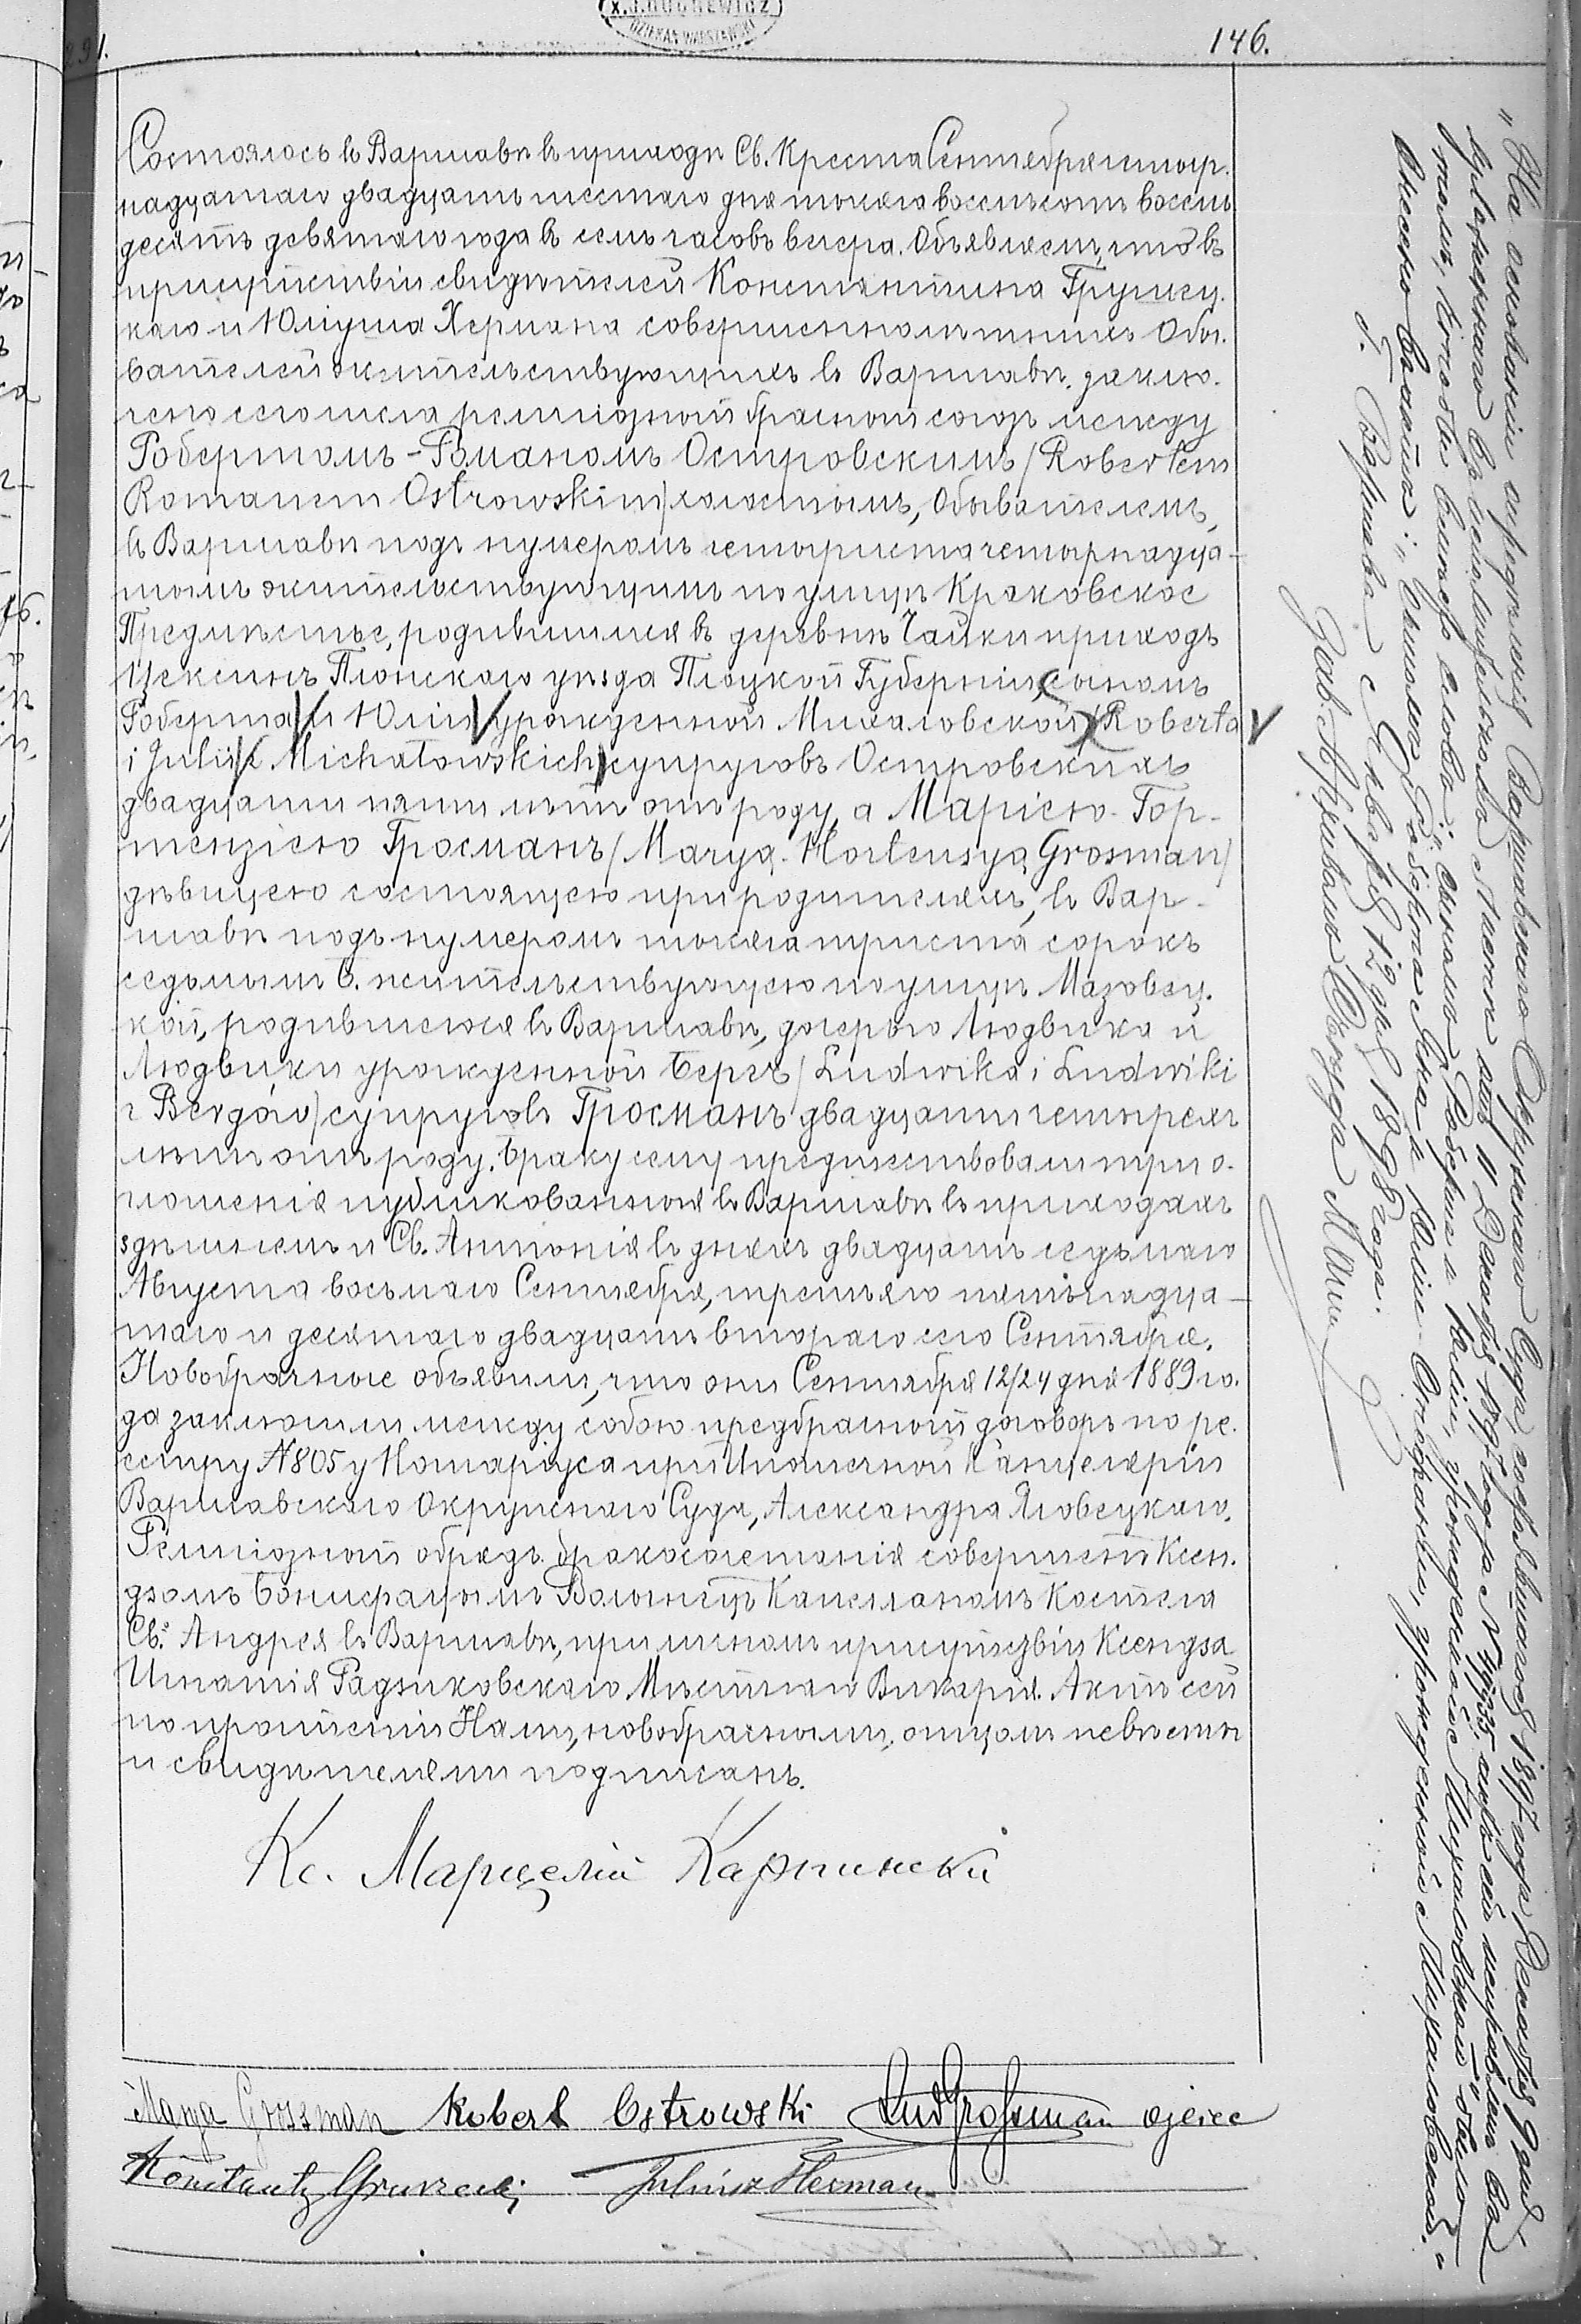 291.
146.
X.J.DUDREWICZ
DZIEKAN WARSZAWSKI
Состоялось въ Варшавѣ въ приходѣ Св. Креста Сентября четыр.
надцатаго двадцать шестаго дня тысяча восемьсотъ восемь
десятъ девятаго года въ семь часовъ вечера. Объявляемъ, что въ
присутствіи свидѣтелей Константина Грушец.
каго и Юлiуша Хермана совершеннолѣтнихъ Обы.
вателей жительствующихъ въ Варшавѣ. заклю.
чено сего числа религіозный брачный союзъ между
Робертомъ-Романомъ Островскимъ /Robertem
Romanem Ostrowskim/ холостымъ, Обывателемъ,
въ Варшавѣ подъ нумеромъ четыриста четырнадца-
тымъ жительствующимъ по улицѣ Краковское
Предмѣстье, родившимся въ деревнѣ Чайки приходъ
Цексинъ Плонскаго уѣзда Плоцкой Губерніи, сыномъ
Роберта и Юліи урожденной Михаловской /Roberta
i Julii z Michałowskich/ супруговъ Островскихъ
двадцати пяти лѣтъ отъ роду, а Маріею-Гор-
тензіею Гросманъ /Maryą-Hortensyą Grosman/
дѣвицею состоящею при родителяхъ, въ Вар-
шавѣ подъ нумеромъ тысяча триста сорокъ
седьмымъ б. жительствующею по улицѣ Мазовец.
кой, родившеюся въ Варшавѣ, дочерью Людвика и
Людвики урожденной Бергъ /Ludwika i Ludwiki
z Bergów/ супруговъ Гросманъ двадцати четырехъ
лѣтъ отъ роду. Браку сему предшествовали три о.
глошенія публикованныя въ Варшавѣ въ приходахъ
здѣшнемъ и Св. Антонія въ дняхъ двадцать седьмаго
Августа восьмаго Сентября, третьяго пятьнадца-
таго и десятаго двадцать втораго сего Сентября.
Новобрачные объявили, что они Сентября 12/24 дня 1889 го.
да заключили между собою предбрачный договоръ по ре.
естру №805 у Нотаріуса при Ипотечной Канцеляріи
Варшавскаго Окружнаго Суда, Александра Яловецкаго.
Религіозный обрядъ бракосочетанія совершенъ Ксен.
дзомъ Бонифаціемъ Капелланомъ Костела
Св. Андрея въ Варшавѣ, при личномъ присутствіи Ксендза
Игнатія Радзиковскаго Мѣстнаго Викарія. Актъ сей
по прочтеніи Нами, новобрачными, отцомъ невѣсты
и свидѣтелями подписанъ.
Кс. Марцелій Карпинскій
Marya Grossman Robert Ostrowski Lud Grossman ojciec
Konstanty Gruszecki Juliusz Herman
"На основаніи опредѣленія Варшавскаго Окружнаго Суда состоявшагося 1897 года Декабря 9 дня
Роберта и Юліи, урожденной Михаловской" было
внесено "сыномъ Роберта и Юліи Островскихъ, урожденной Михаловской."
г. Варшава Января 12 дня 1898 года.
Зав. Архивомъ